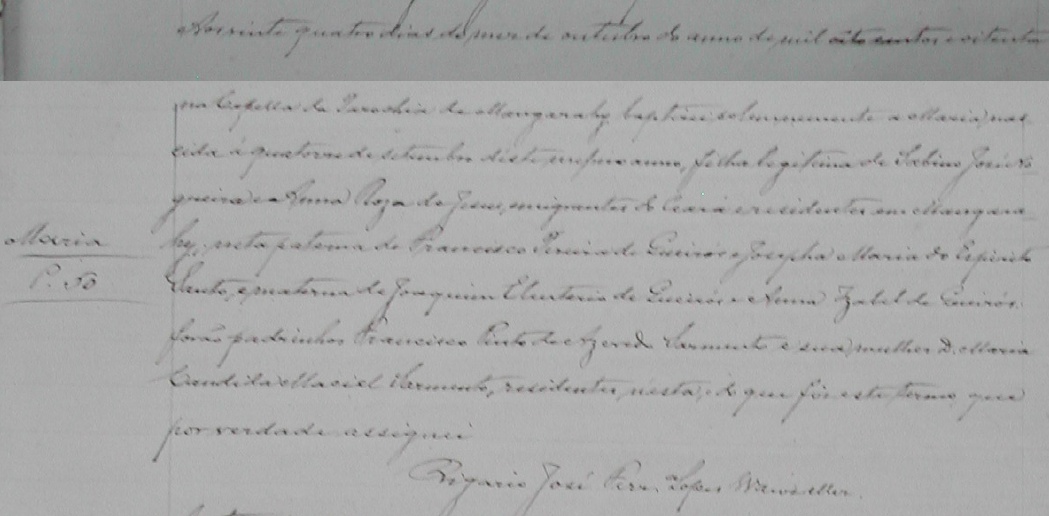 Aos vinte quatro dias do mez de outubro do anno de mil oito centos e oitenta
na Capella da Parochia de Mangarahy baptizei solennemente a Maria, nas
cida á quatorze de setembro deste mesmo anno, filha legitima de Sabino José No
gueira e Anna Roza de Jesus, emigrantes do Ceará e residentes em Mangara
hy, neta paterna de Francisco Pereira de Queirós e Josepha Maria do Espirito
Maria
P. 50
Santo, e materna de Joaquim Eleuterio de Queirós e Anna Izabel de Queirós.
forão padrinhos Francisco Pinto de Azeredo Sarmento e sua mulher D. Maria
Candida Maciel Sarmento, residentes nesta, do que fiz este termo, que
por verdade assignei
Vigario José Lopes